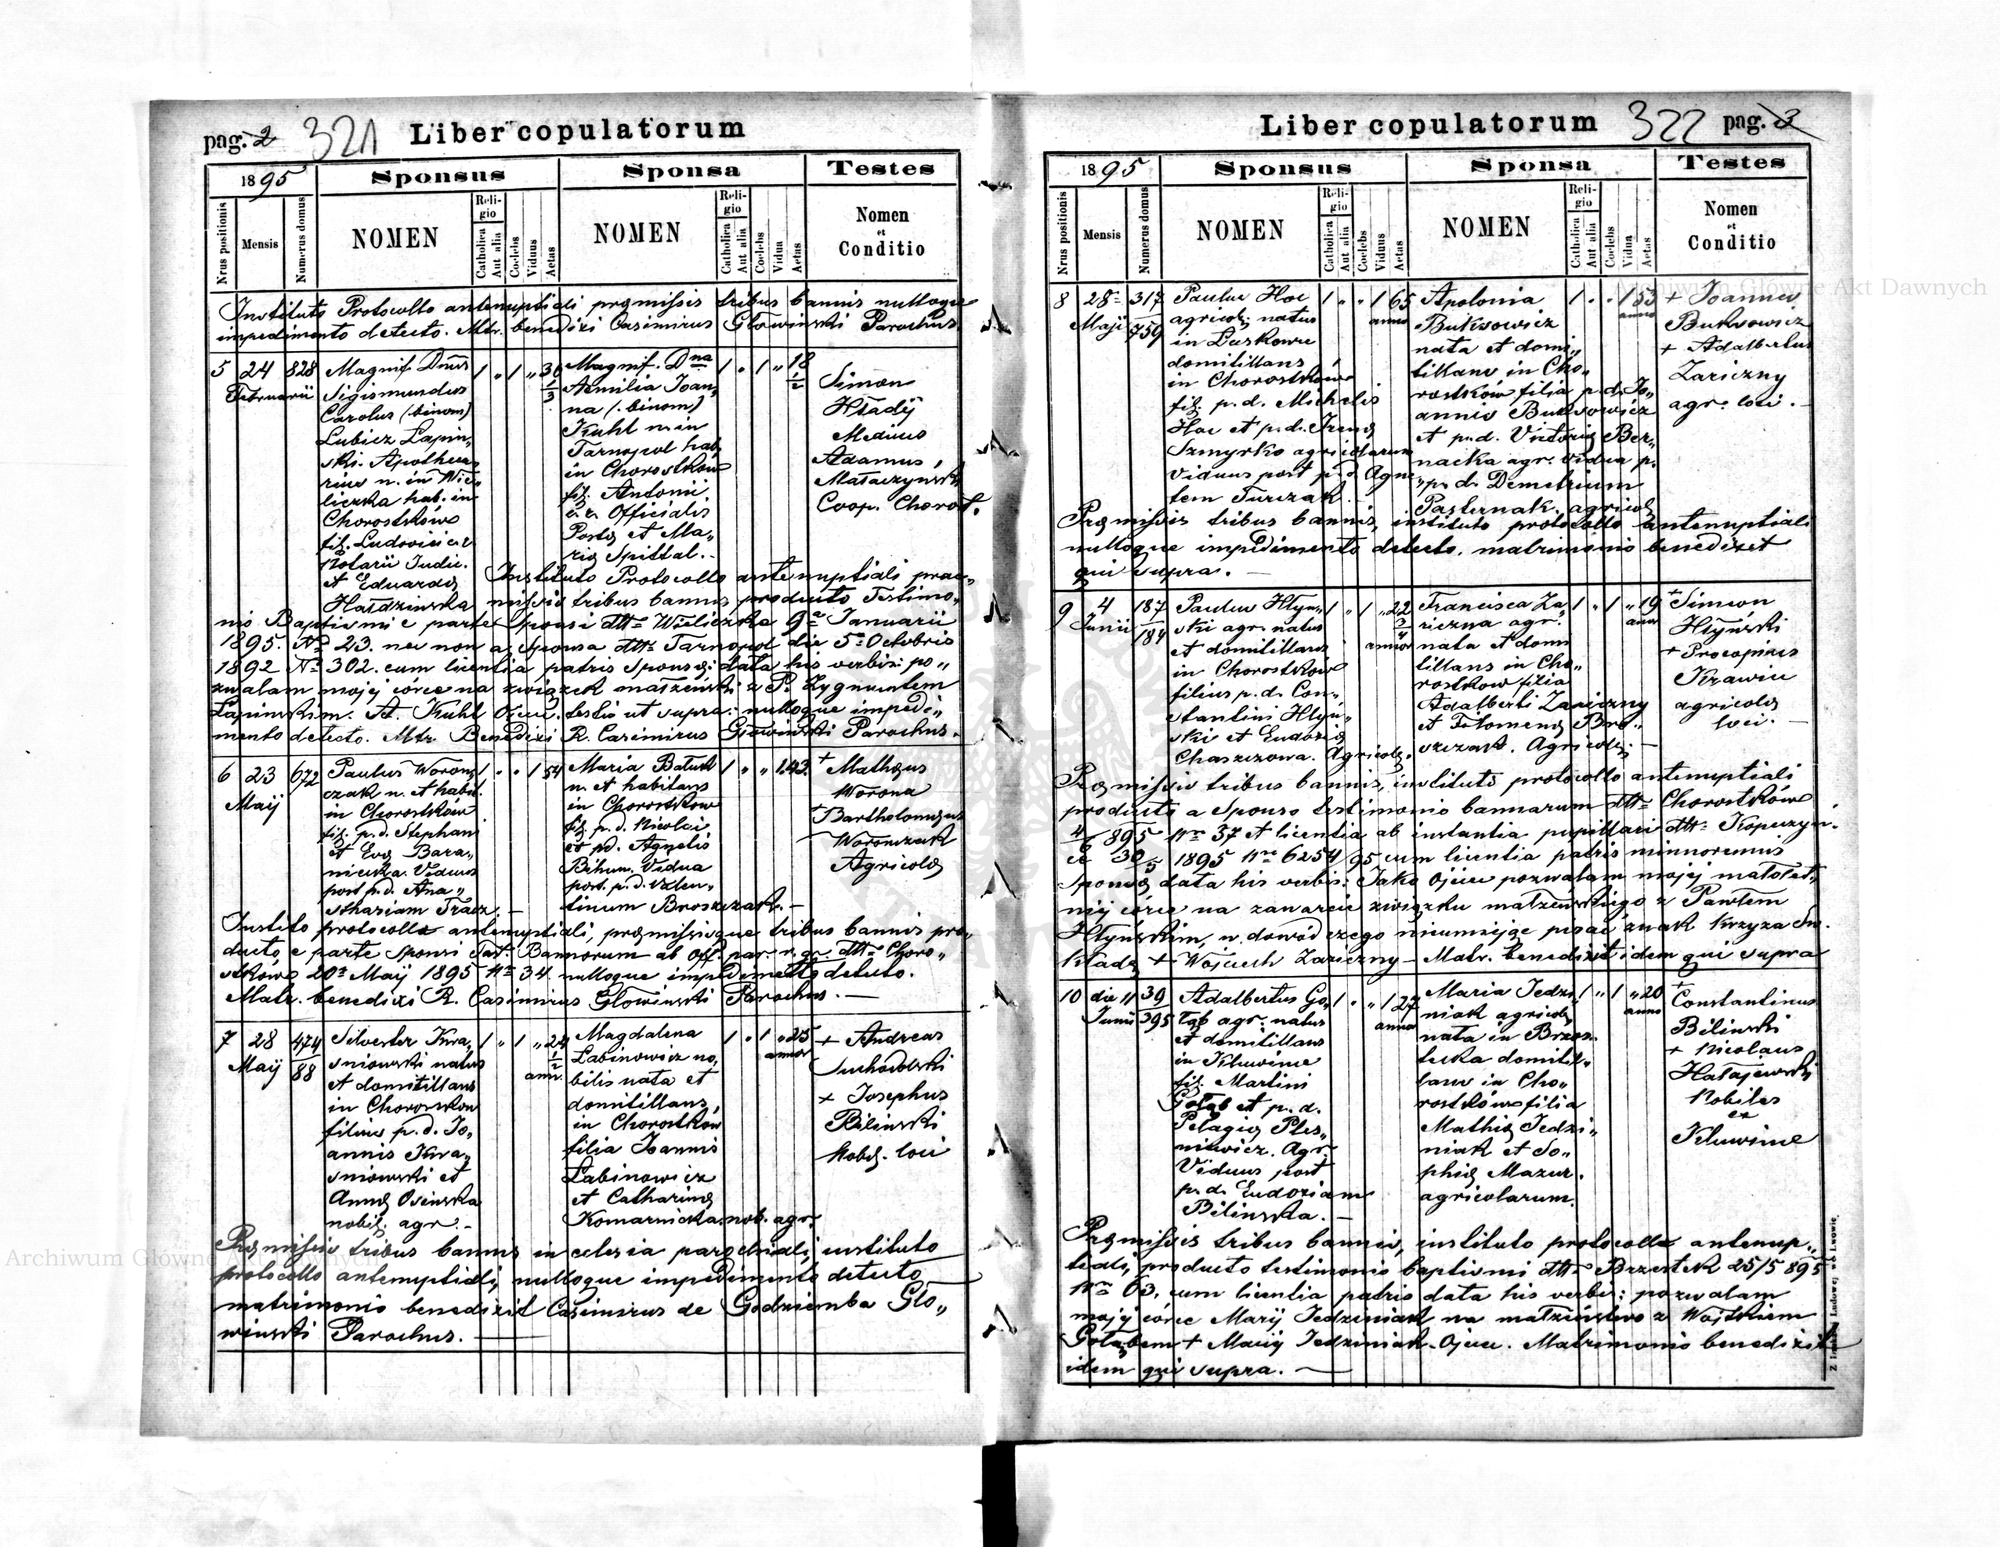 pag. 2 321 Liber copulatorum
1895 Sponsus Sponsa Testes
Nrus positionis Mensis Numerus domus NOMEN Religio Catholica Aut alia Coelebs Viduus Aetas NOMEN Religio Catholica Aut alia Coelebs Vidua Aetas Nomen et Conditio
Instituto Protocollo antenuptiali præmissis tribus bannis nulloque
impedimento detecto. Mtr. benedixi Casimirus Głowiński Parochus.
5 24 Februarii 828
Magnif. Dnus
Sigismundus
Carolus (binom)
Lubicz Łapin„
ski. Apotheca
rius n. in Wie„
liczka hab. in
Chorostków
fil. Ludovici c.r
Notarii Judic.
et Eduardæ
Hałdzińska
1 „ 1 „ 30 1/3
Magnif. Dna
Aemilia Joan„
na (: binom)
Kuhl n. in
Tarnopol hab.
in Chorostków
fil. Antonii
c.r. Officialis
Postæ et Ma„
riæ Spittal. -
1 „ 1 „ 18 1/2
Simon
Hładÿ
Medicus
Adamus
Mataczynski
Coop. Chorost.
Instituto Protocollo antenuptiali prae„
missis tribus bannis producto Testimo„
nio Baptismi e parte sponsi dtto Wieliczka 9a Januarii
1895. No 23. nec non a Sponsa dtto Tarnopol die 5a Octobris
1892 No 302. cum licentia patris Sponsæ data his verbis: po„
zwalam mojej córce na związek małżeński z P. Zygmuntem
Łapinskim. A. Kuhl Ojciec. testis ut supra: nulloque impedi„
mento detecto. Mtr. Benedixi R. Casimirus Głowiński Parochus. -
6 23 Maÿ 672
Paulus Woron„
czak n. et habit.
in Chorostków
fil. p. d. Stephani
et Evæ Bara„
niecka. Viduus
post p. d. Ana„
sthasiam Tracz. -
1 „ „ 1 54
Maria Baturk
n. et habitans
in Chorostków
fil. p. d. Nicolai
et pd. Agnetis
Bihun. Vidua
post. p. d. Valen„
tinum Broszczak. -
1 „ „ 1 43
+ Mathæus
Worona
+ Bartholomæus
Woronczak
Agricolæ
Instito protocollo antenuptiali, præmissisque tribus bannis pro„
ducto e parte Sponsi Tat. Bannorum ab off. par. r. gr. dtto Choro„
stków 20a Maÿ 1895 Nro 34. nulloque impedimento detecto.
Matr. benedixi R. Casimirus Głowiński Parochus. -
7 28 Maÿ 474/88
Silvester Kwa„
sniowski natus
et domitillans
in Chorostkow
filius p. d. Jo„
annis Kwa„
sniowski et
Annæ Osinska
nobil. agr. -
1 „ 1 „ 24 1/2 ann.
Magdalena
Labinowicz no„
bilis nata et
domitillans,
in Chorostków
filia Joannis
Labinowicz
et Catharinæ
Komarnicka. nob. agr.
1 „ 1 „ 25 annor
+ Andreas
Suchodolski
+ Josephus
Biliński
Nobil. loci
Præmissis tribus bannis in eclesia parochiali, instituto
protocollo antenuptiali, nulloque impedimento detecto
matrimonio benedixit Casimirus de Godziemba Gło„
wiński Parochus.
Liber copulatorum 322 pag. 3
1895 Sponsus Sponsa Testes
Nrus positionis Mensis Numerus domus NOMEN Religio Catholica Aut alia Coelebs Viduus Aetas NOMEN Religio Catholica Aut alia Coelebs Vidua Aetas Nomen et Conditio
8 28a Maji 317/759
Paulus Hoc
agricol. natus
in Laskowce
domitillans
in Chorostków
fil. p. d. Michælis
Hoc et p. d. Irenæ
Szmyrko agricolarum
Viduus post p. d. Agne„
tem Turczak.
1 „ „ 1 65 annor
Apolonia
Buksowicz
nata et domi„
tillans in Cho„
rostków filia p. d. Jo„
annis Buksowicz
et p. d. Victoriæ Ber„
nacka agr. Vidua p.
p. d. Demetrium
Pasternak. agricolæ
1 „ „ 1 53 annor
+ Joannes
Buksowicz
+ Adalbertus
Zariczny
agr. loci. -
Præmissis tribus bannis, instituto protocollo antenuptiali
nulloque impedimento detecto. matrimonio benedixit
qui supra. -
9 4 Junii 187/184
Paulus Hłyn„
ski agr. natus
et domitillans
in Chorostków
filius p. d. Con„
stantini Hłyń„
ski et Eudoxiæ
Chaszczowa. Agricolæ.
1 „ 1 „ 22 3/4 annor
Francisca Za„
riczna agr.
nata et domi
tillans in Cho„
rostkow filia
Adalberti Zariczny
et Filomenæ Bro„
szczak. Agricolæ. -
1 „ 1 „ 19 annor
+ Simeon
Hłyński
+ Procopius
Krawiec
agricolæ
loci. -
Præmissis tribus bannis, instituto protocollo antenuptiali
producto a Sponso testimonio bannarum dtto Chorostków
4/6 895 Nro 37 et licentia ab instantia pupillari dtto Kopeczyn.
30/5 1895 Nro 6254/95 cum licentia patris minnorennis
Sponsæ data his verbis: Jako Ojciec pozwalam mojej małolet„
niej córce na zawarcie związku małżeńskiego z Pawłem
Hłyńskim, w dowód czego nieumiejąc pisać znak krzyża Sw.
kładę + Wojciech Zariczny - Matr. benedixit idem qui supra
10 die 11 Junii 39/395
Adalbertus Go„
łąb agr. natus
et domitillans
in Kluwince
fil. Martini
Gołąb et p. d.
Pelagiæ Ples„
niewicz. Agr.
Viduus post
p. d. Eudoxiam
Bilinska. -
1 „ „ 1 27 annor
Maria Jedzi„
niak agricolæ
nata in Brzos„
tecka domitil„
lans in Cho„
rostków filia
Mathiæ Jedzi„
niak et So„
phiæ Mazur.
agricolarum.
1 „ 1 „ 20 annor
+ Constantinus
Biliński
+ Nicolaus
Hałajewski
Nobiles
ex
Kluwince
Præmissis tribus bannis, instituto protocollo antenup„
tiali, producto testimonio baptismi dtto Brzostek 25/5 895
Nro 63, cum licentia patris data his verbis: pozwalam
mojej córce Maryi Jedziniak na małżeństwo z Wojtkiem
Gołąbem + Maciej Jedziniak. Ojciec. Matrimonio benedixit
idem qui supra. -
Archiwum Główne Akt Dawnych
Archiwum Główne Akt Dawnych